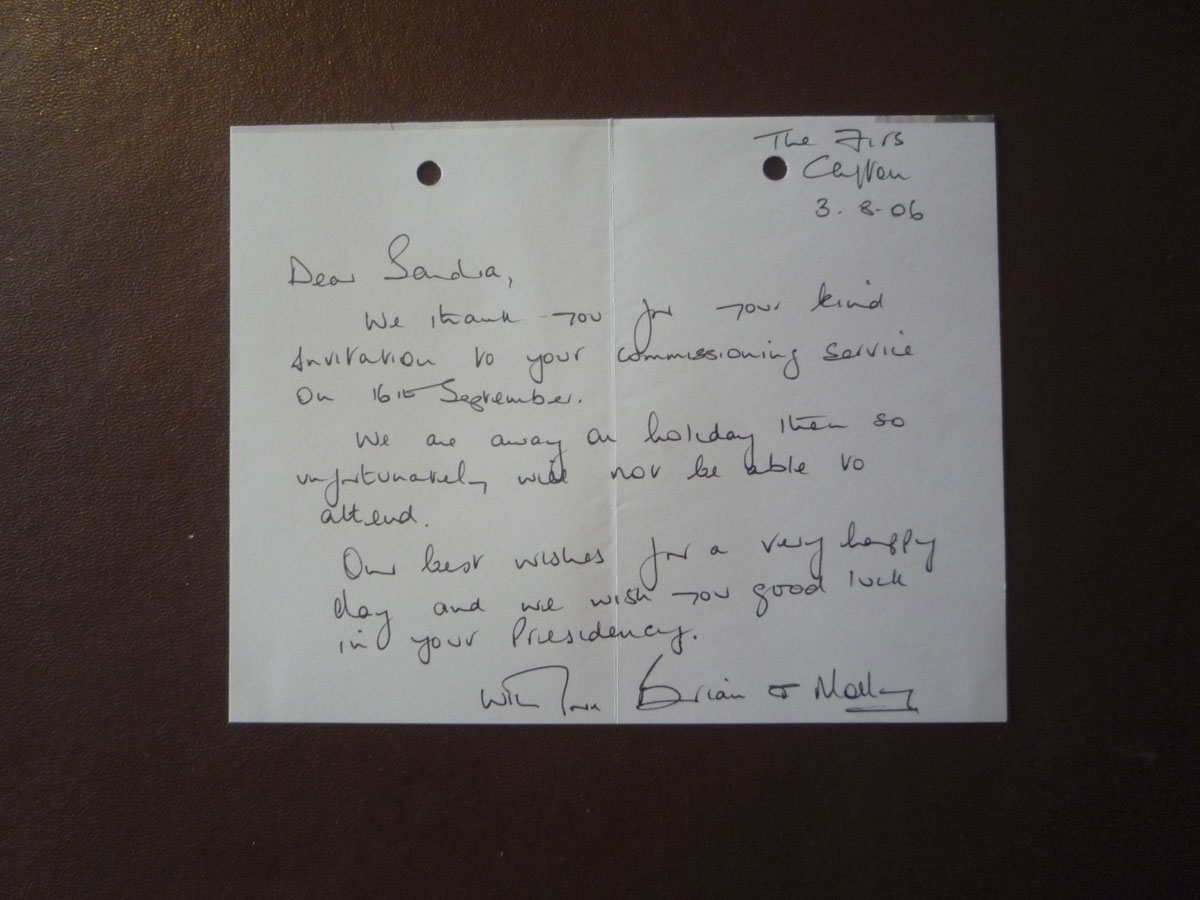 The Firs
Clifton
3. 8. 06
Dear Sandra,
We thank you for your kind
invitation to your commissioning service
on 16th September.
We are away on holiday then so
unfortunately will not be able to
attend.
Our best wishes for a very happy
day and we wish you good luck
in your Presidency.
With love Brian & Molly